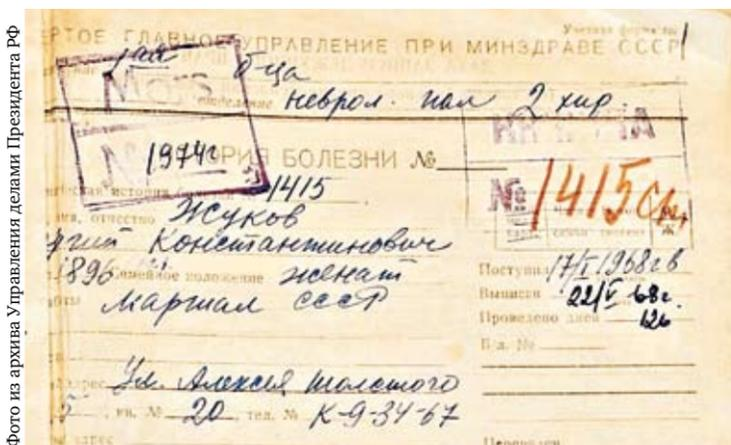 Фото из архива Управления делами Президента РФ
Учетная форма №1
ЕРТОЕ ГЛАВНОЕ УПРАВЛЕНИЕ ПРИ МИНЗДРАВЕ СССР
б-ца
отделение неврол. пал 2 хир.
1974г
ИСТОРИЯ БОЛЕЗНИ №
№ 1415
история 1415
имя, отчество Жуков
Константинович
1896 Семейное положение женат
Маршал СССР
Поступил 17/I 1968г в
Выписан 22/V 68г.
Проведено дней 126
Адрес Ул. Алексея Толстого
5, кв. № 20, тел. № К-9-34-67
адрес